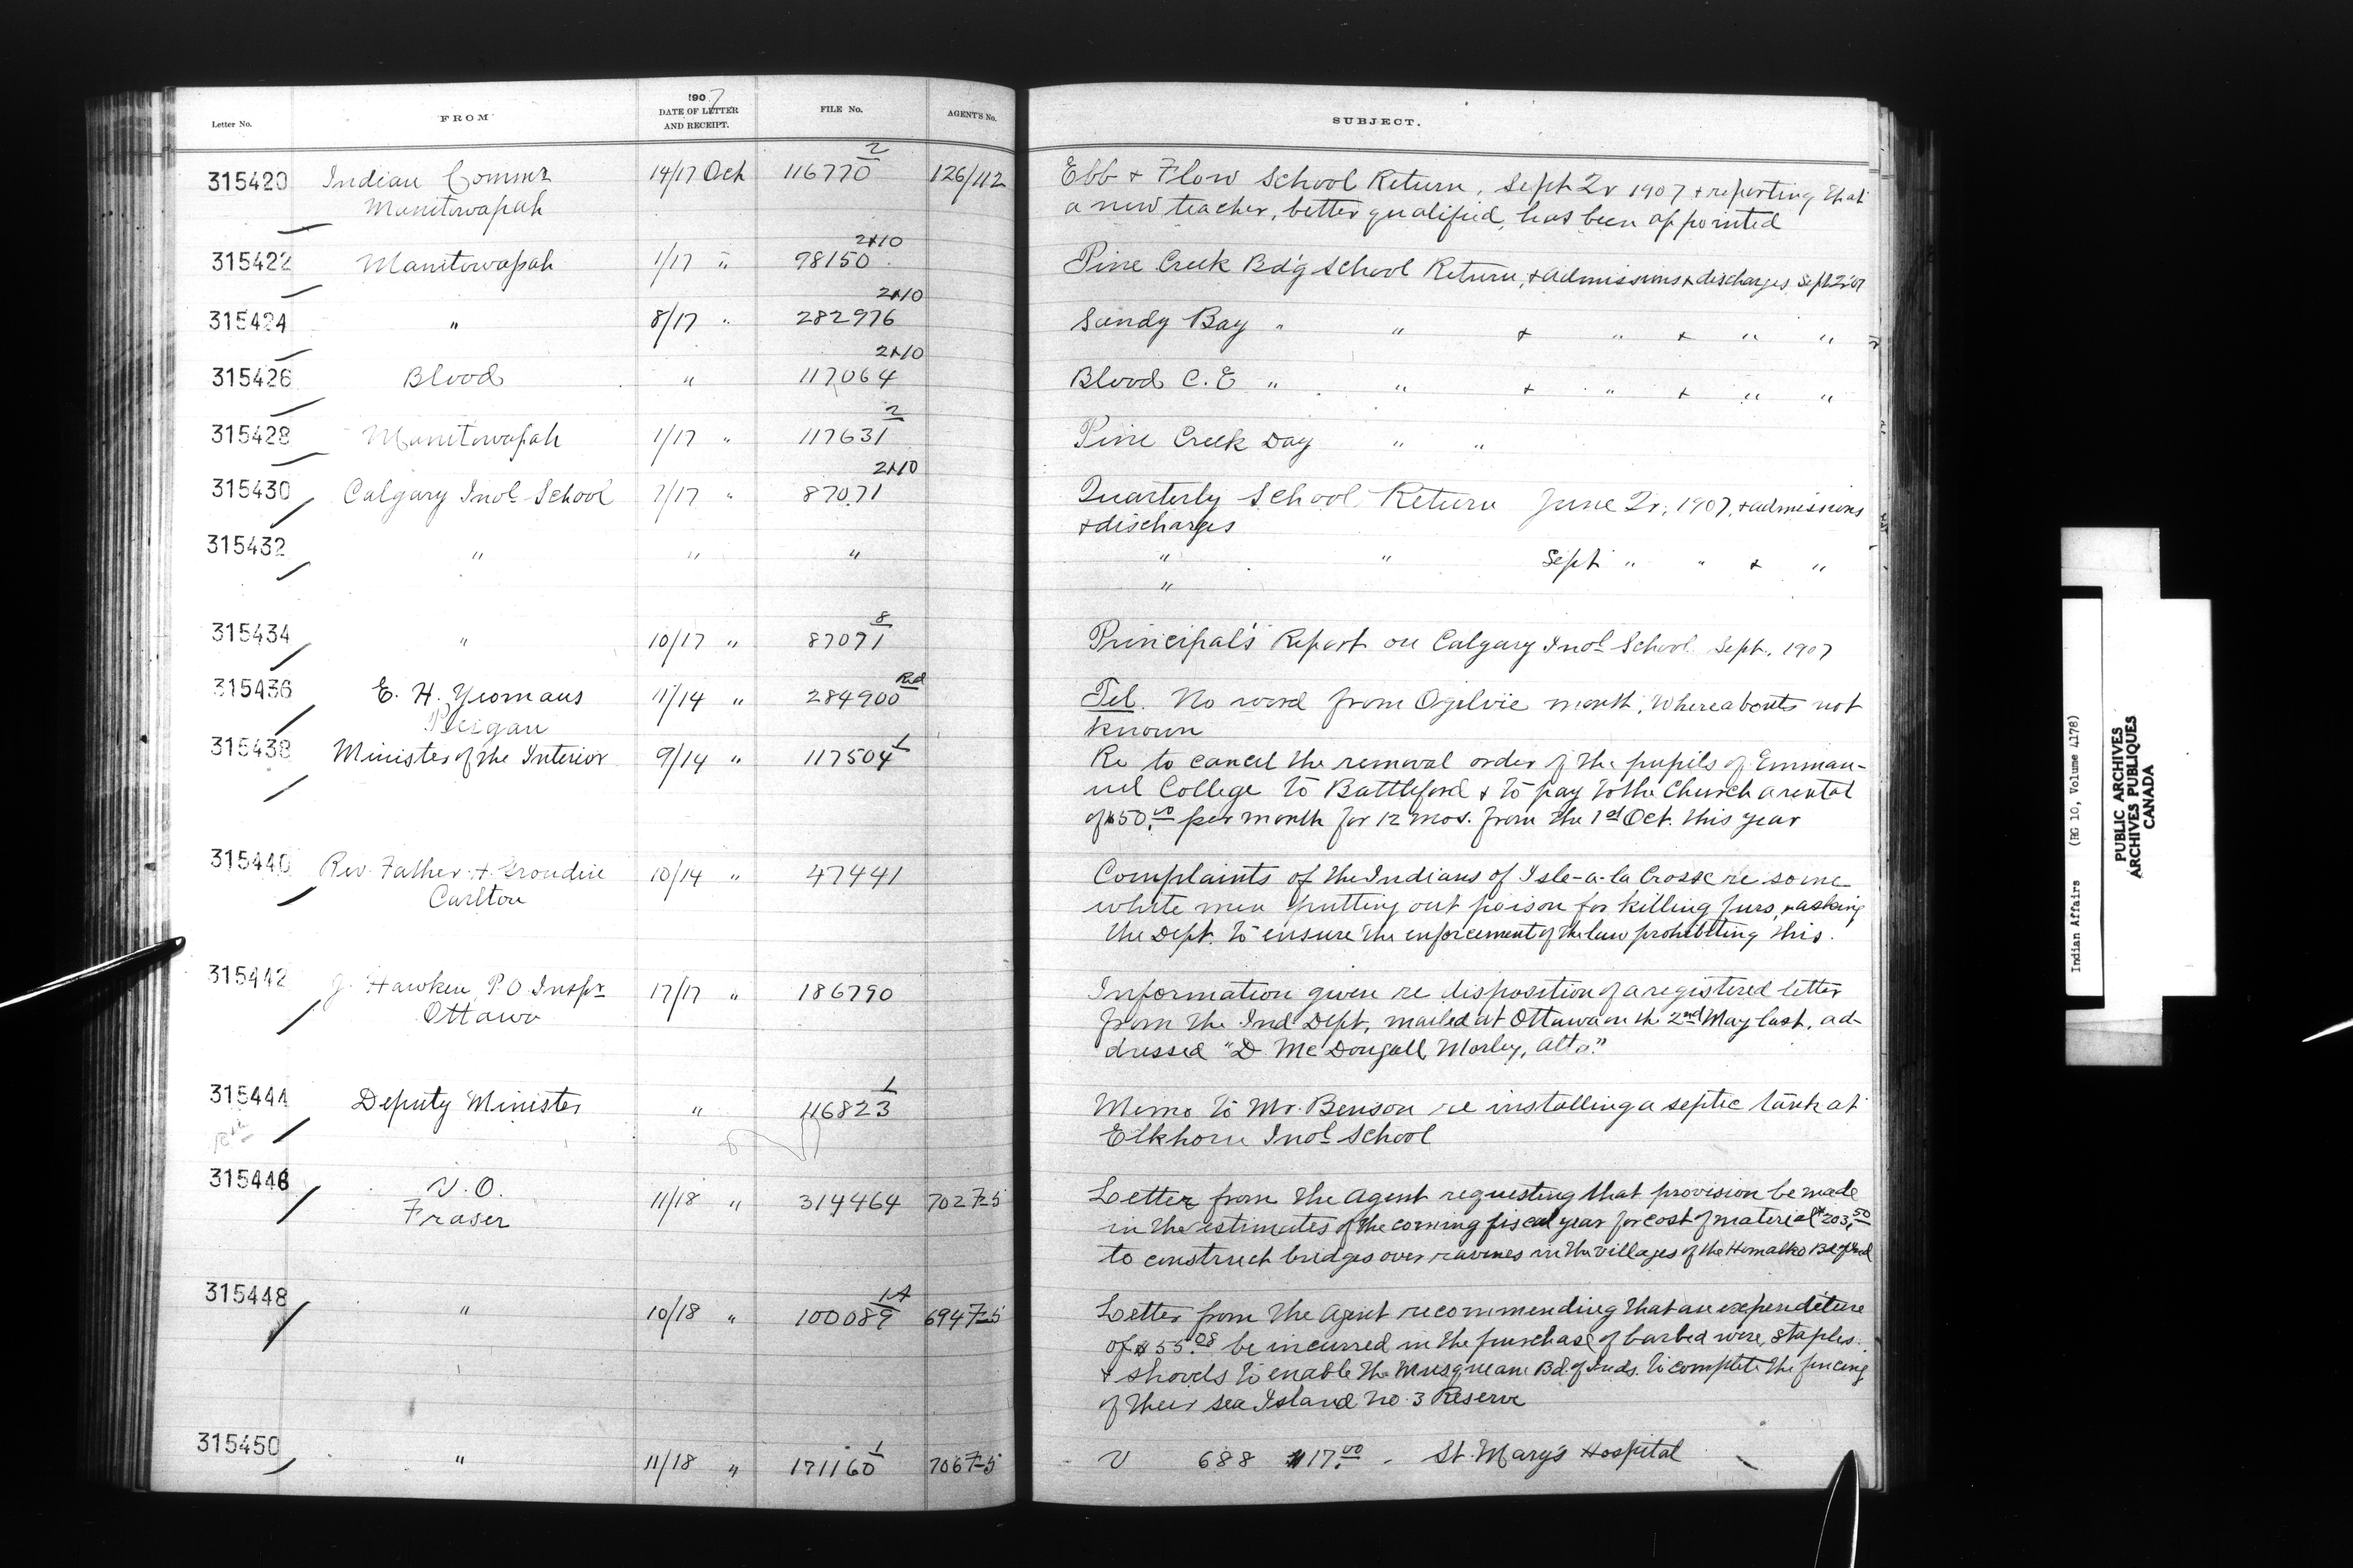 Letter No. FROM 1907 DATE OF LETTER AND RECEIPT. FILE No. AGENT'S No. SUBJECT.
315420 Indian Commr 14/17 Oct 116770 2 126/112 Ebb & Flow School Return, Sept Qr 1907 & reporting that
Manitowapah a new teacher, better qualified, has been appointed
315422 Manitowapah 1/17 " 98150 2&10 Pine Creek Bd'g School Return, & admissions & discharges Sept Qr 07
315424 " 8/17 " 282976 2&10 Sandy Bay " " & " & " "
315426 Blood " 117064 2&10 Blood C.E " " & " & " "
315428 Manitowapah 1/17 " 117631 2 Pine Creek Day " "
315430 Calgary Indl School 7/17 " 87071 2&10 Quarterly School Return June Qr, 1907, & admissions
& discharges
315432 " " " " " Sept " " & "
"
315434 " 10/17 " 87071 8 Principal's Report on Calgary Indl School Sept. 1907
315436 E. H. Yeomans 11/14 " 284900 Rd Tel. No word from Ogilvie month, Whereabouts not
Peigan known
315438 Minister of the Interior 9/14 " 117504 1 Re to cancel the removal order of the pupils of Emman-
uel College to Battleford & to pay to the Church a rental
of $50.00 per month for 12 mos. from the 1st Oct. this year
315440 Rev Father Grondin 10/14 " 47441 Complaints of the Indians of Isle-a-la Crosse re some
Carlton white men putting out poison for killing furs, & asking
the Dept. to ensure the enforcement of the law prohibiting this.
315442 J. Hawken P.O. Inspr 17/17 " 186790 Information given re disposition of a registered letter
Ottawa from the Ind Dept, mailed at Ottawa on the 2nd May last, ad-
dressed "D McDougall, Morley, Alta."
315444 Deputy Minister " 116823 1 Memo to Mr. Benson re installing a septic tank at
Elkhorn Indl School
315446 V.O. 11/18 " 314464 702 F-5 Letter from the Agent requesting that provision be made
Fraser in the estimates of the coming fiscal year for cost of material $203.50
to construct bridges over ravines in the villages of the Homalko Bd of Ind
315448 " 10/18 " 100089 1A 694 F-5 Letter from the Agent recommending that an expenditure
of $55.08 be incurred in the purchase of barbed wire, staples
& shovels to enable the Musqueam Bd. of Inds. to complete the fencing
of their Sea Island No. 3 Reserve
315450 " 11/18 " 171160 1 706 F-5 V 688 $17.00 - St. Mary's Hospital
Indian Affairs (RG 10, Volume 4178)
PUBLIC ARCHIVES
ARCHIVES PUBLIQUES
CANADA